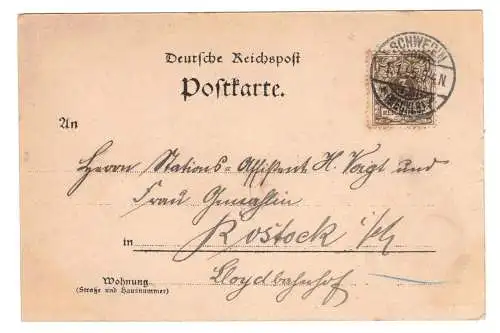 Deutsche Reichspost
Postkarte.
SCHWERIN
(MECKLB)
An
Herrn Stations-Assistent H. Voigt und
Frau Gemahlin
in Rostock i/M
Lloydbahnhof
Wohnung
(Straße und Hausnummer)